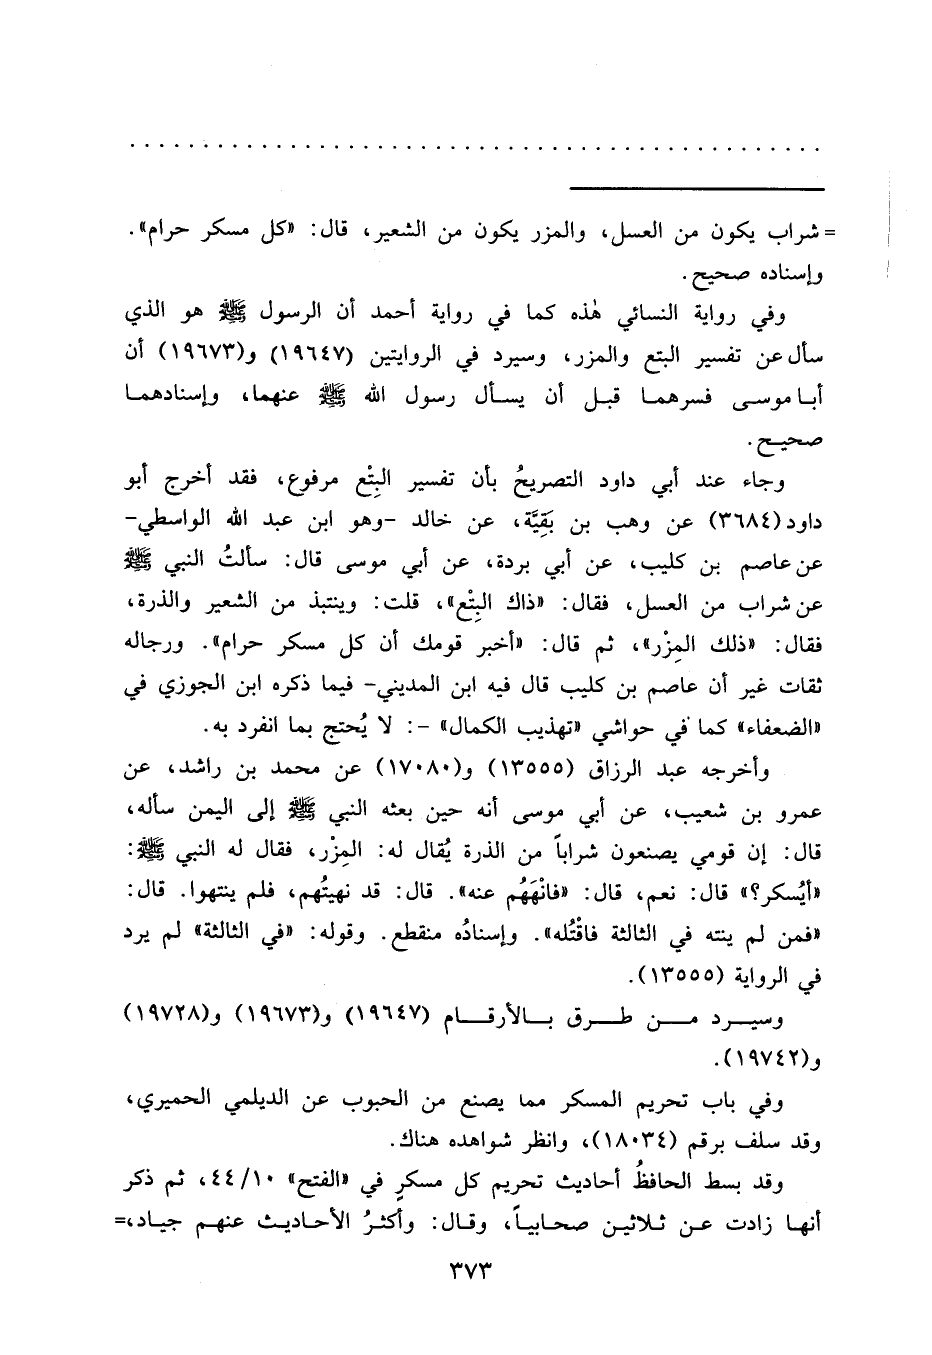 . . . . . . . . . . . . . . . . . . . . . . . . . . . . . . . . . . . . . . . . . . . . . . . .
= شراب يكون من العسل، والمزر يكون من الشعير، قال: «كل مسكر حرام».
وإسناده صحيح.
وفي رواية النسائي هٰذه كما في رواية أحمد أن الرسول ﷺ هو الذي
سأل عن تفسير البتع والمزر، وسيرد في الروايتين (١٩٦٤٧) و(١٩٦٧٣) أن
أبا موسى فسرهما قبل أن يسأل رسول الله ﷺ عنهما، وإسنادهما
صحيح.
وجاء عند أبي داود التصريحُ بأن تفسير البِتْع مرفوع، فقد أخرج أبو
داود(٣٦٨٤) عن وهب بن بَقِيَّة، عن خالد -وهو ابن عبد الله الواسطي-
عن عاصم بن كليب، عن أبي بردة، عن أبي موسى قال: سألتُ النبي ﷺ
عن شراب من العسل، فقال: «ذاك البِتْع»، قلت: وينتبذ من الشعير والذرة،
فقال: «ذلك المِزْر»، ثم قال: «أخبر قومك أن كل مسكر حرام». ورجاله
ثقات غير أن عاصم بن كليب قال فيه ابن المديني- فيما ذكره ابن الجوزي في
«الضعفاء» كما في حواشي «تهذيب الكمال» -: لا يُحتج بما انفرد به.
وأخرجه عبد الرزاق (١٣٥٥٥) و(١٧٠٨٠) عن محمد بن راشد، عن
عمرو بن شعيب، عن أبي موسى أنه حين بعثه النبي ﷺ إلى اليمن سأله،
قال: إن قومي يصنعون شراباً من الذرة يُقال له: المِزْر، فقال له النبي ﷺ:
«أيُسكر؟» قال: نعم، قال: «فانْهَهُم عنه». قال: قد نهيتُهم، فلم ينتهوا. قال:
«فمن لم ينته في الثالثة فاقْتُله». وإسنادُه منقطع. وقوله: «في الثالثة» لم يرد
في الرواية (١٣٥٥٥).
وسيرد من طرق بالأرقام (١٩٦٤٧) و(١٩٦٧٣) و(١٩٧٢٨)
و(١٩٧٤٢).
وفي باب تحريم المسكر مما يصنع من الحبوب عن الديلمي الحميري،
وقد سلف برقم (١٨٠٣٤)، وانظر شواهده هناك.
وقد بسط الحافظُ أحاديث تحريم كل مسكرٍ في «الفتح» ٤٤/١٠، ثم ذكر
أنها زادت عن ثلاثين صحابياً، وقال: وأكثرُ الأحاديث عنهم جياد،=
٣٧٣